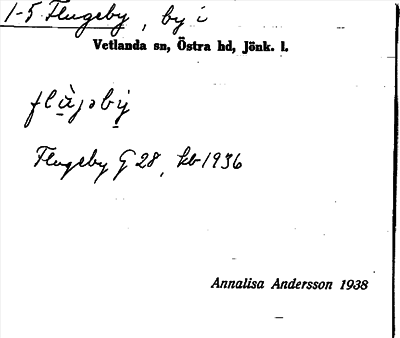 1-5 Flugeby, by i
Vetlanda sn, Östra hd, Jönk. l.
flù̲jəbẏ̲
Flugeby G 28, kb 1936
Annalisa Andersson 1938